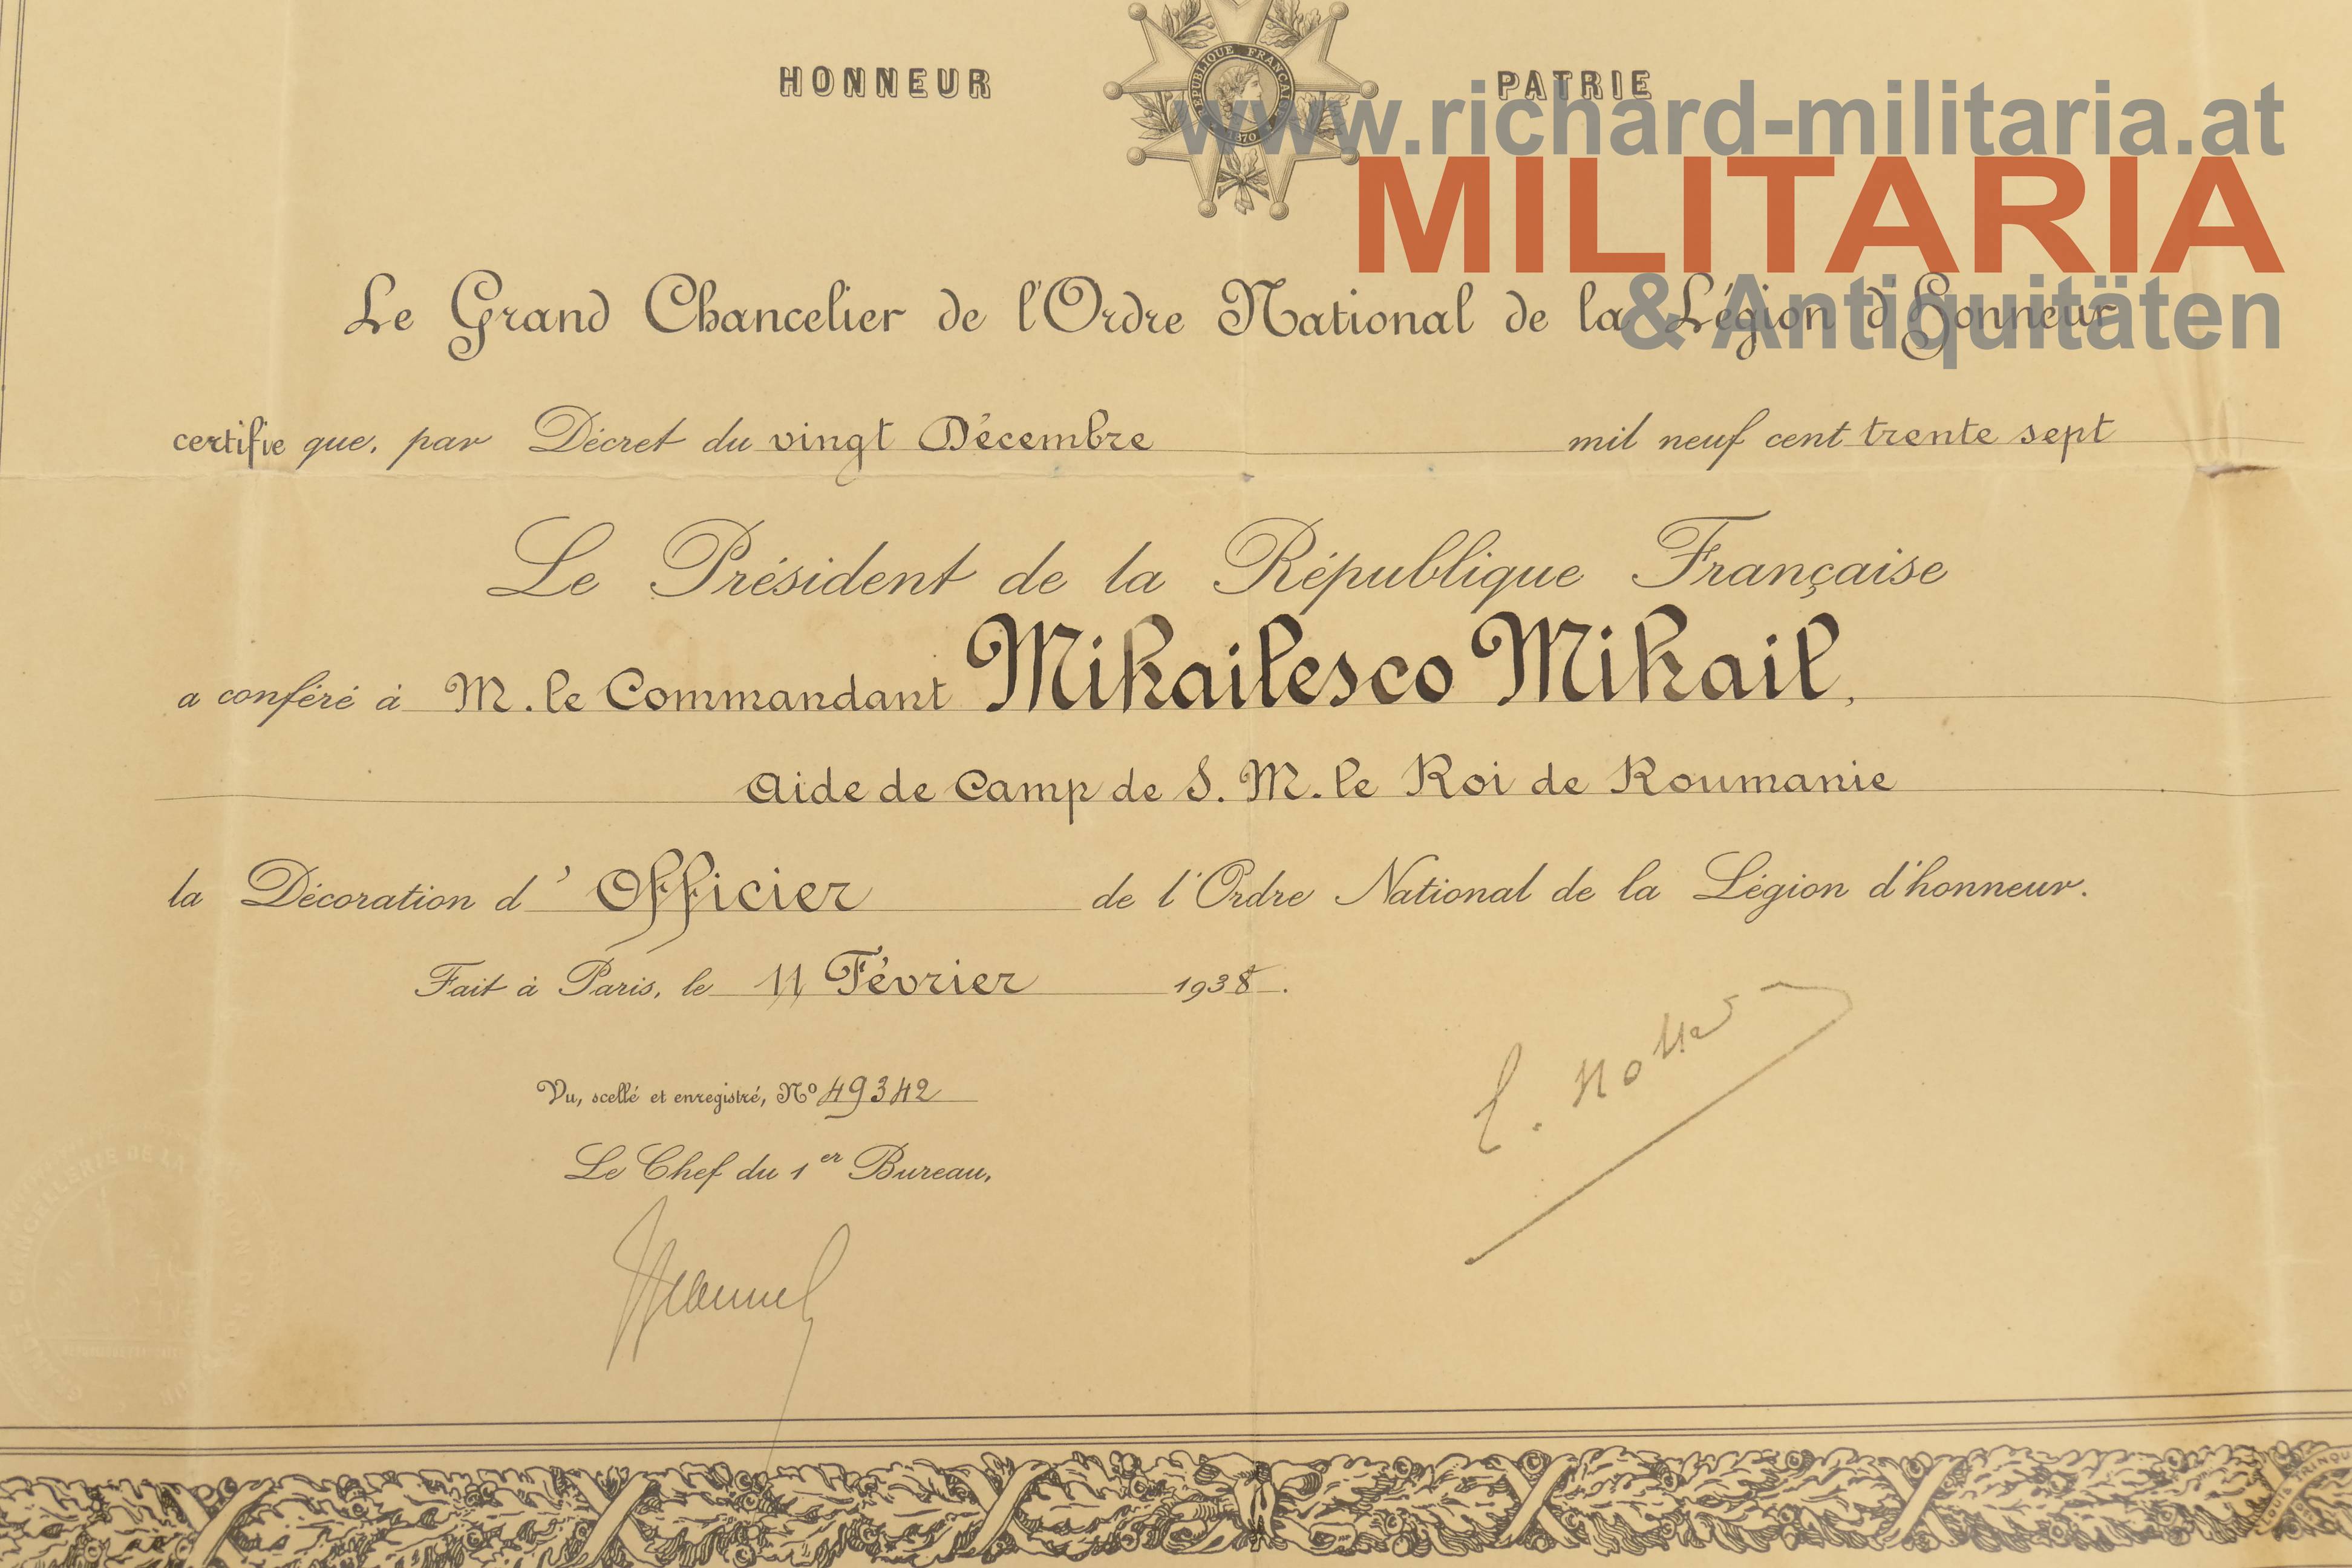 HONNEUR PATRIE
REPUBLIQUE FRANCAISE
1870
www.richard-militaria.at
MILITARIA
& Antiquitäten
Le Grand Chancelier de l'Ordre National de la Légion d'Honneur
certifie que, par Décret du vingt Décembre mil neuf cent trente sept
Le Président de la République Française
a conféré à M. le Commandant Mikailesco Mikail,
Aide de Camp de S. M. le Roi de Roumanie
la Décoration d'Officier de l'Ordre National de la Légion d'honneur.
Fait à Paris, le 11 Février 1938.
Vu, scellé et enregistré, No 49342
Le Chef du 1er Bureau,